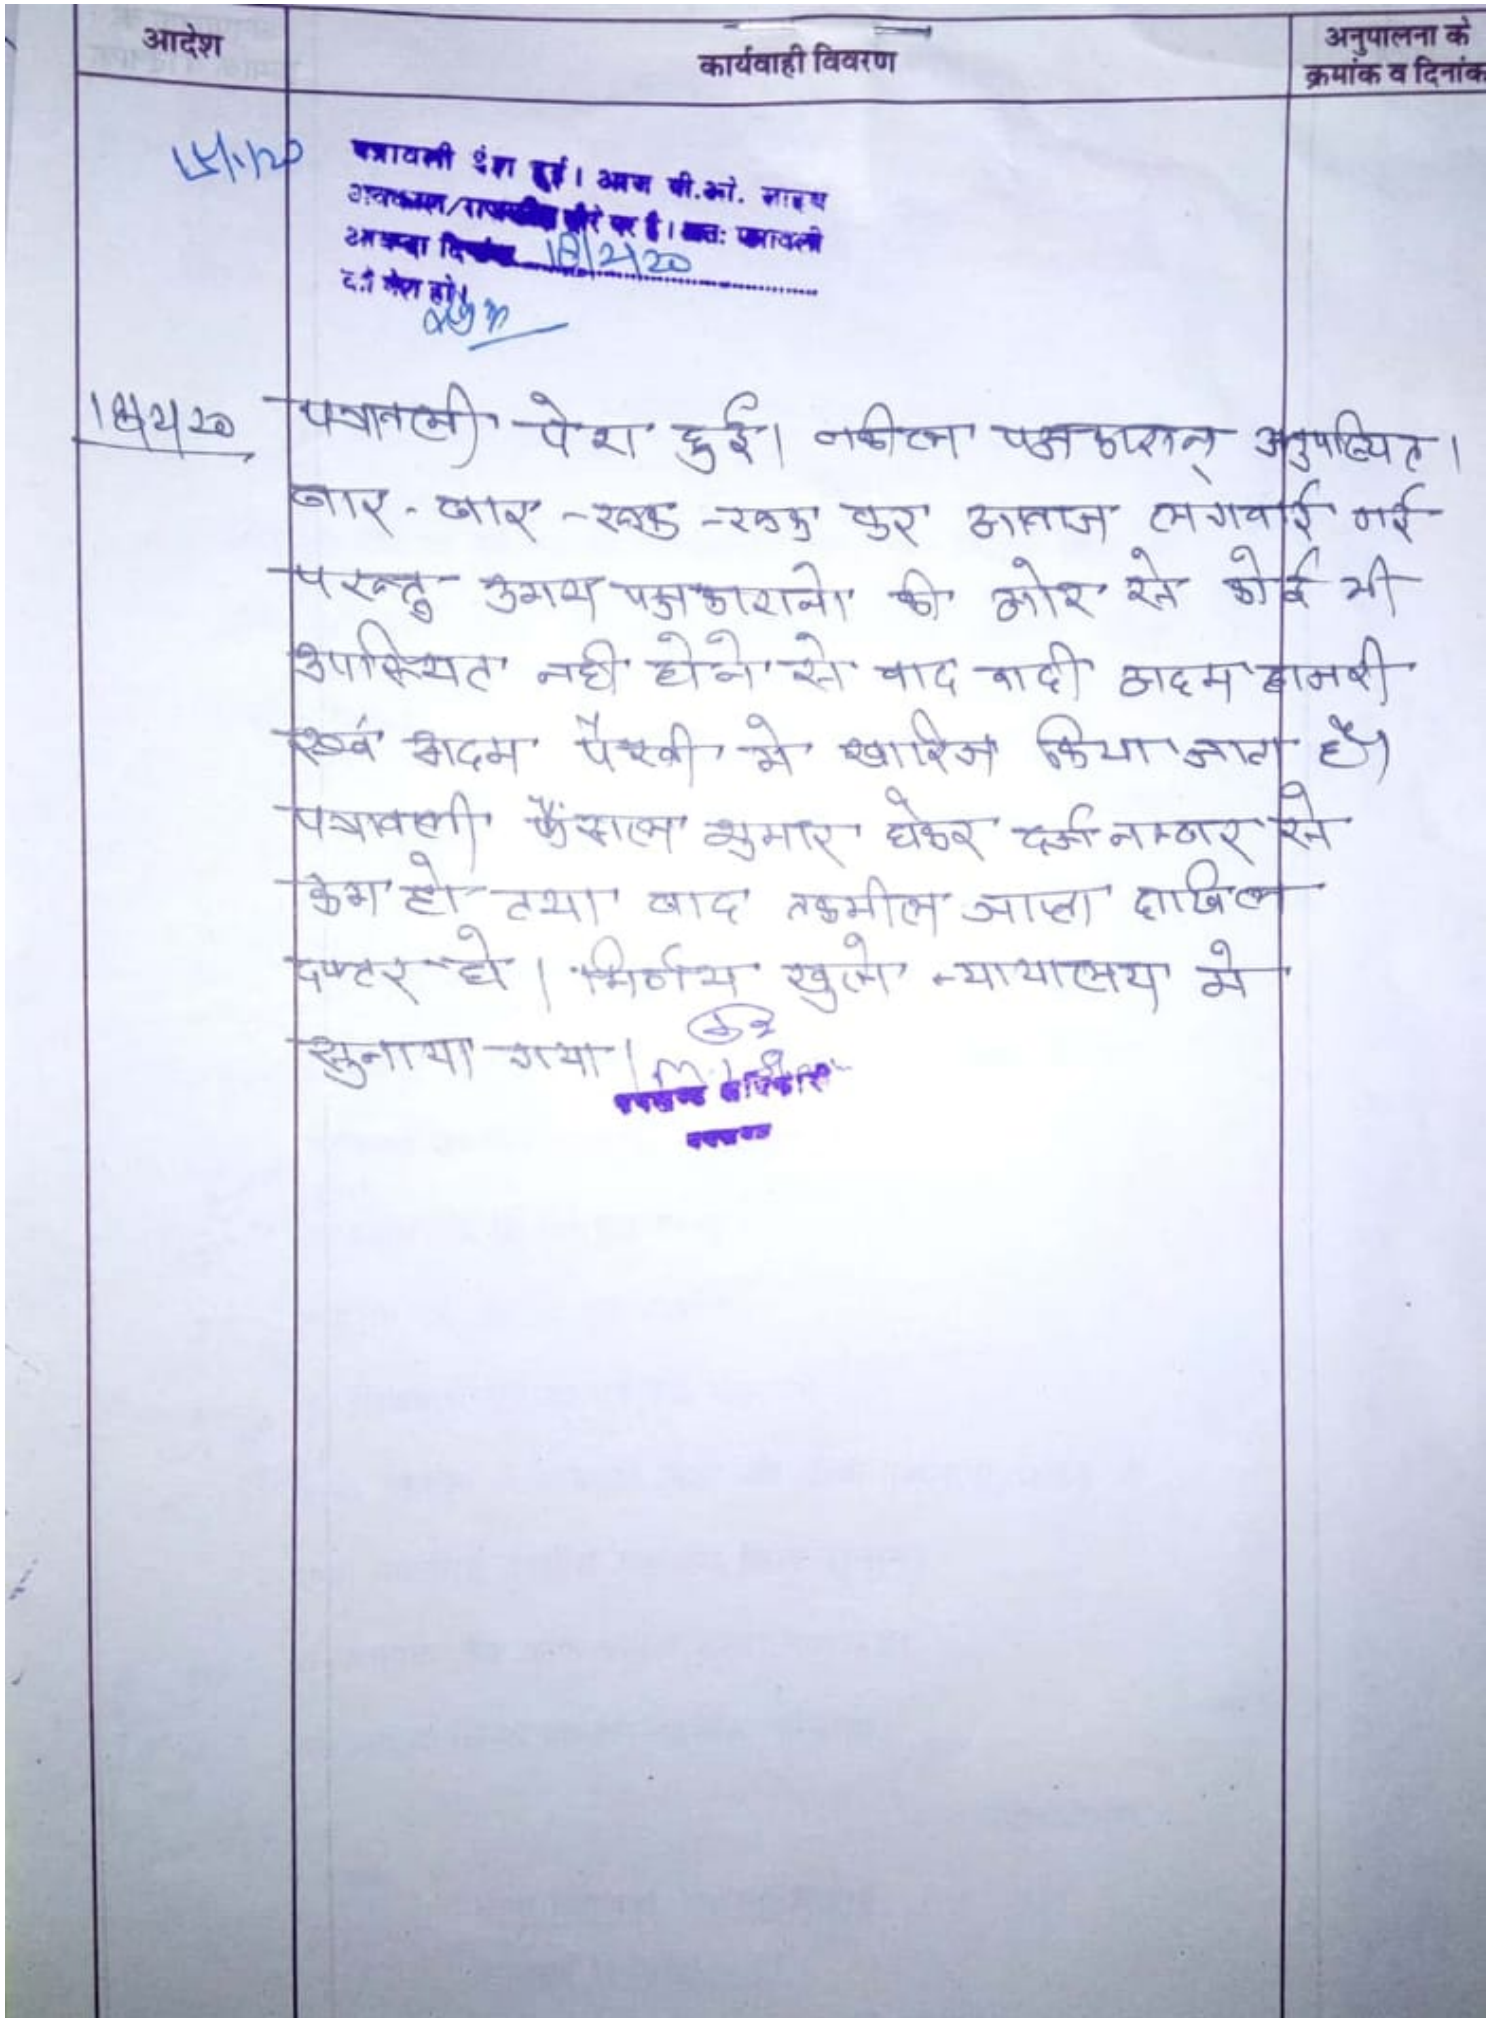 आदेश
कार्यवाही विवरण
अनुपालना के
क्रमांक व दिनांक
15/1/20
पत्रावली पेश हुई। आज पी.ओ. साहब
अवकाश/राजकीय दौरे पर है। अतः पत्रावली
दिनांक 18/2/20
को पेश हो।
18/2/20
पत्रावली पेश हुई। वकील पक्षकारान् अनुपस्थित।
बार-बार रूक-रूक कर आवाज लगवाई गई
परन्तु उभय पक्षकारानो की ओर से कोई भी
उपस्थित नही होने से वाद वादी अदम हाजरी
एवं अदम पैरवी मे खारिज किया जाता है।
पत्रावली फैसल शुमार होकर दर्ज नम्बर से
कम हो तथा बाद तकमील जाप्ता दाखिल
दफ्तर हो। निर्णय खुले न्यायालय मे
सुनाया गया।
उपखण्ड अधिकारी